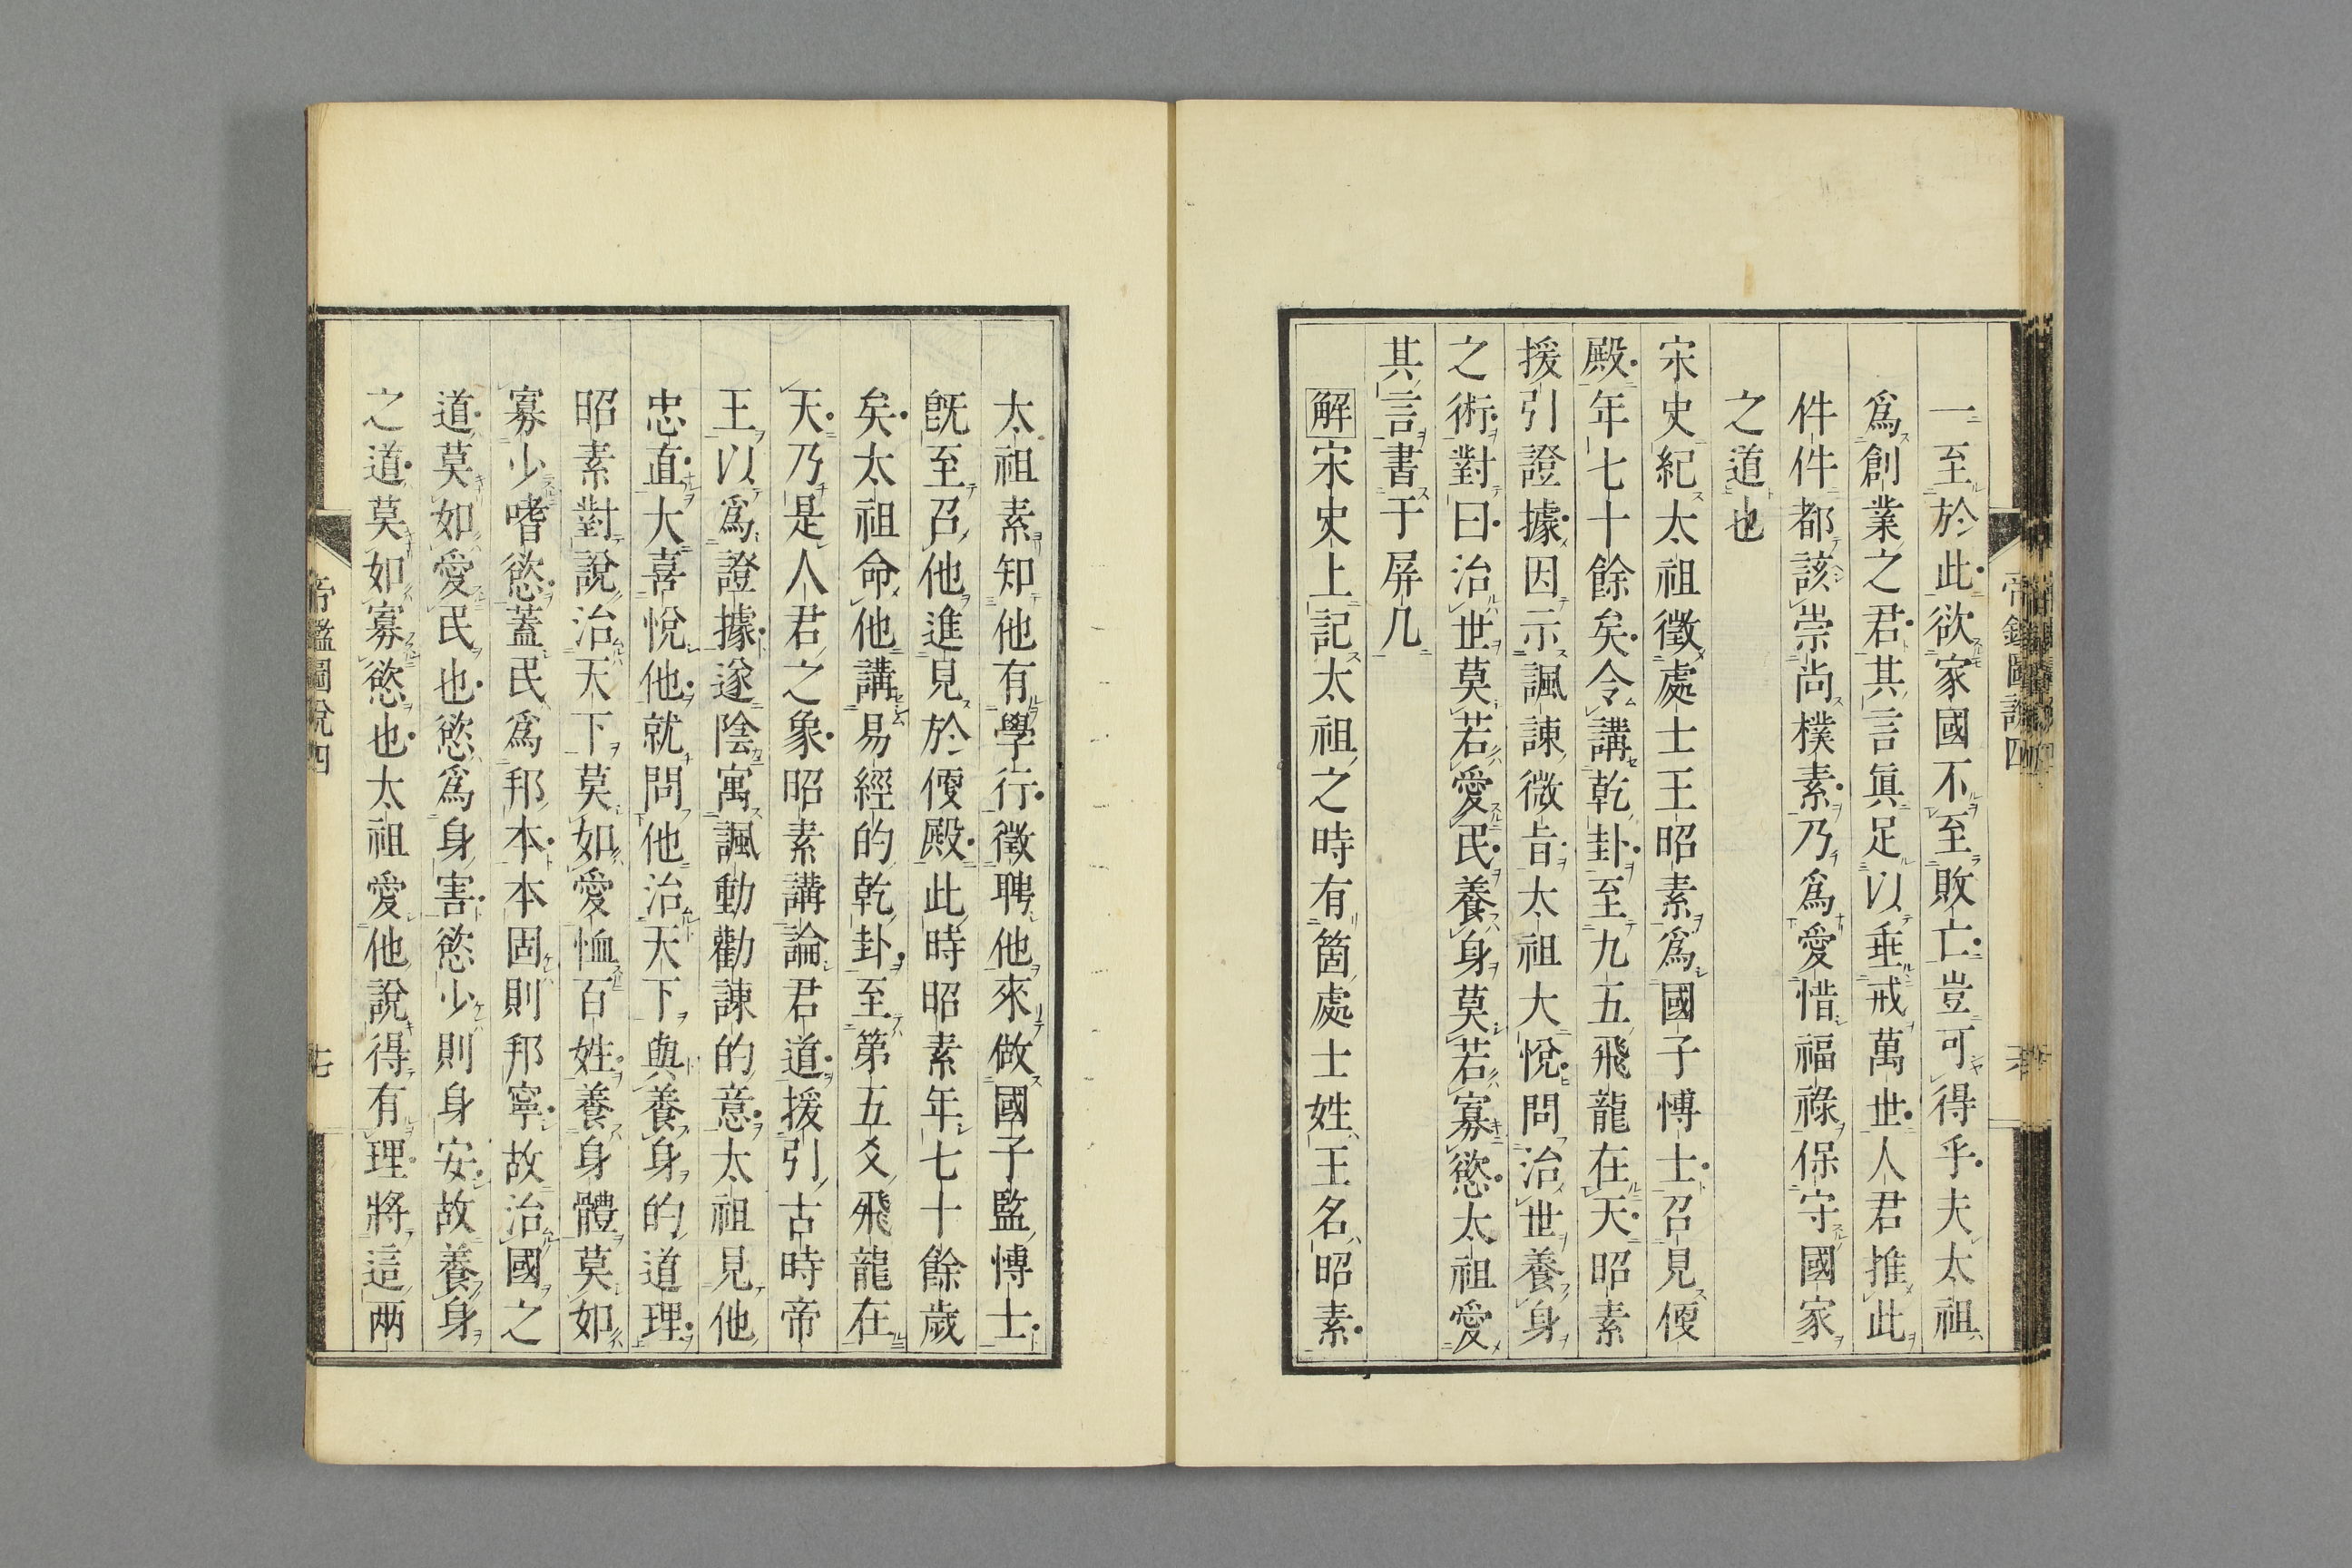 一至於此欲家國不至敗亡豈可得乎夫太祖
爲創業之君其言眞足以垂戒萬世人君推此
件件都該崇尚樸素乃爲愛惜福祿保守國家
之道也
宋史紀太祖徵處士王昭素爲國子博士召見便
殿年七十餘矣令講乾卦至九五飛龍在天昭素
援引證據因示諷諫微旨太祖大悅問治世養身
之術對曰治世莫若愛民養身莫若寡慾太祖愛
其言書于屏几
解宋史上記太祖之時有箇處士姓王名昭素
太祖素知他有學行徵聘他來做國子監博士
旣至召他進見於便殿此時昭素年七十餘歲
矣太祖命他講易經的乾卦至第五爻飛龍在
天乃是人君之象昭素講論君道援引古時帝
王以爲證據遂陰寓諷動勸諫的意太祖見他
忠直大喜悅他就問他治天下與養身的道理
昭素對說治天下莫如愛恤百姓養身體莫如
寡少嗜慾蓋民爲邦本本固則邦寧故治國之
道莫如愛民也慾爲身害慾少則身安故養身
之道莫如寡慾也太祖愛他說得有理將這两
帝鑑圖說四